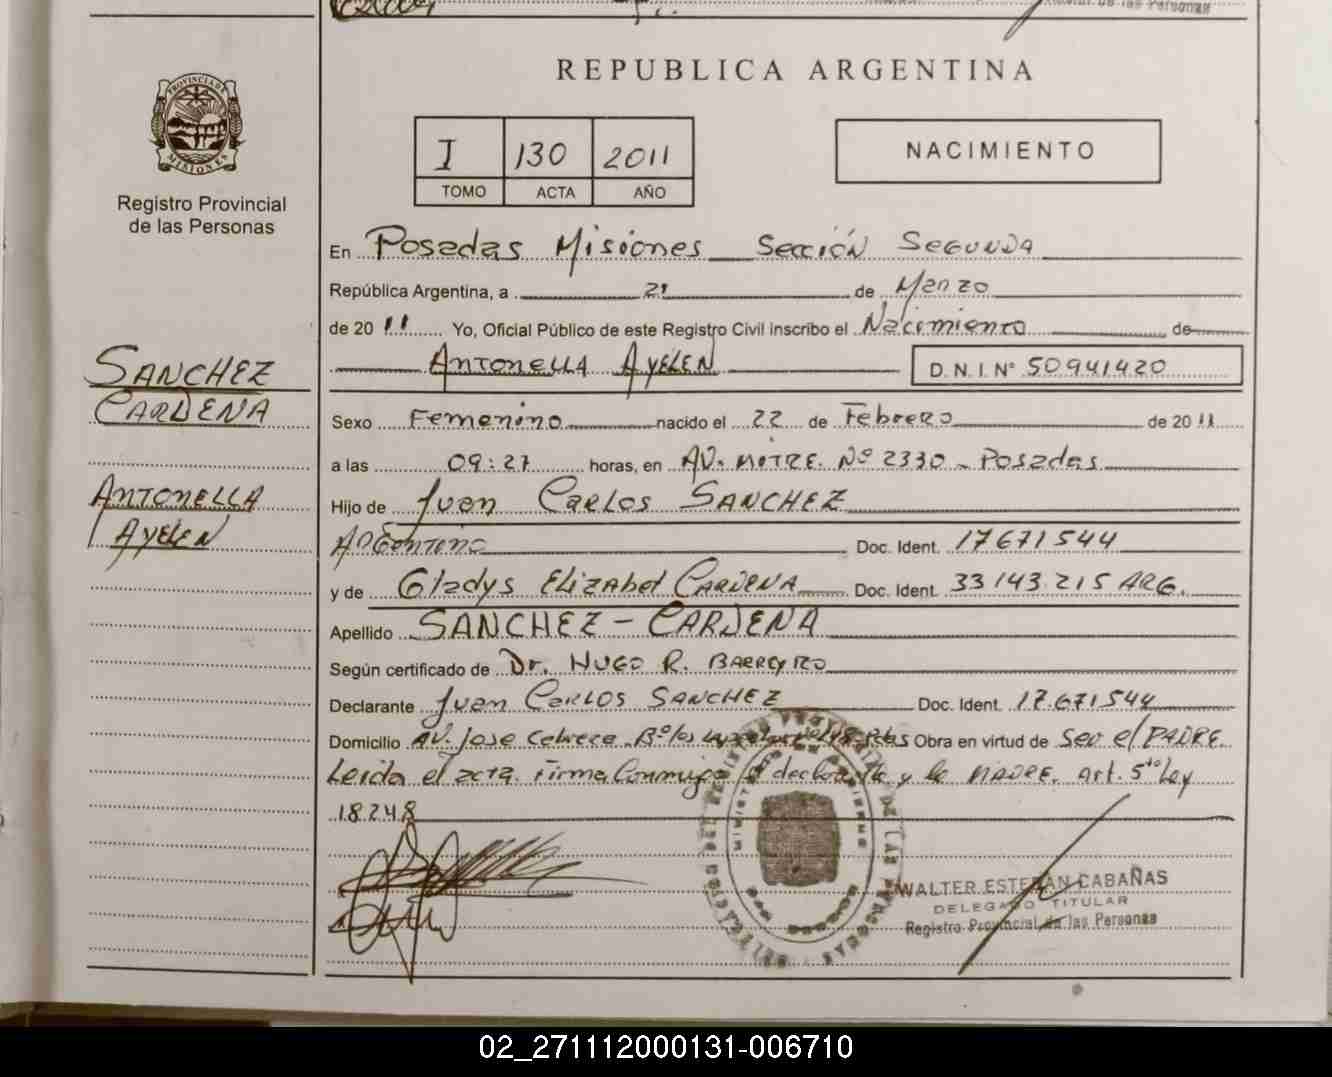 REPUBLICA ARGENTINA
PROVINCIA DE
MISIONES
Registro Provincial
de las Personas
I 130 2011
TOMO ACTA AÑO
NACIMIENTO
En Posadas Misiones Sección Segunda
República Argentina, a 21 de Marzo
de 2011 Yo, Oficial Público de este Registro Civil inscribo el Nacimiento de
Antonella Ayelen D.N.I. Nº 50941420
SANCHEZ
CARDENA
ANTONELLA
AYELEN
Sexo Femenino nacido el 22 de Febrero de 2011
a las 09:27 horas, en AV. MITRE. Nº 2330 - Posadas
Hijo de Juan Carlos SANCHEZ
Argentino Doc. Ident. 17671544
y de Gladys Elizabet CARDENA Doc. Ident. 33143.215 ARG.
Apellido SANCHEZ - CARDENA
Según certificado de Dr. HUGO R. BARREYRO
Declarante Juan Carlos SANCHEZ Doc. Ident. 17.671.544
Domicilio AV. Jose Cabrera Bº los Obra en virtud de Ser el PADRE.
Leida el acta. Firma Conmigo el declarante y la MADRE. Art. 5to Ley
18248
WALTER ESTEBAN CABAÑAS
DELEGADO TITULAR
Registro Provincial de las Personas
02_271112000131-006710